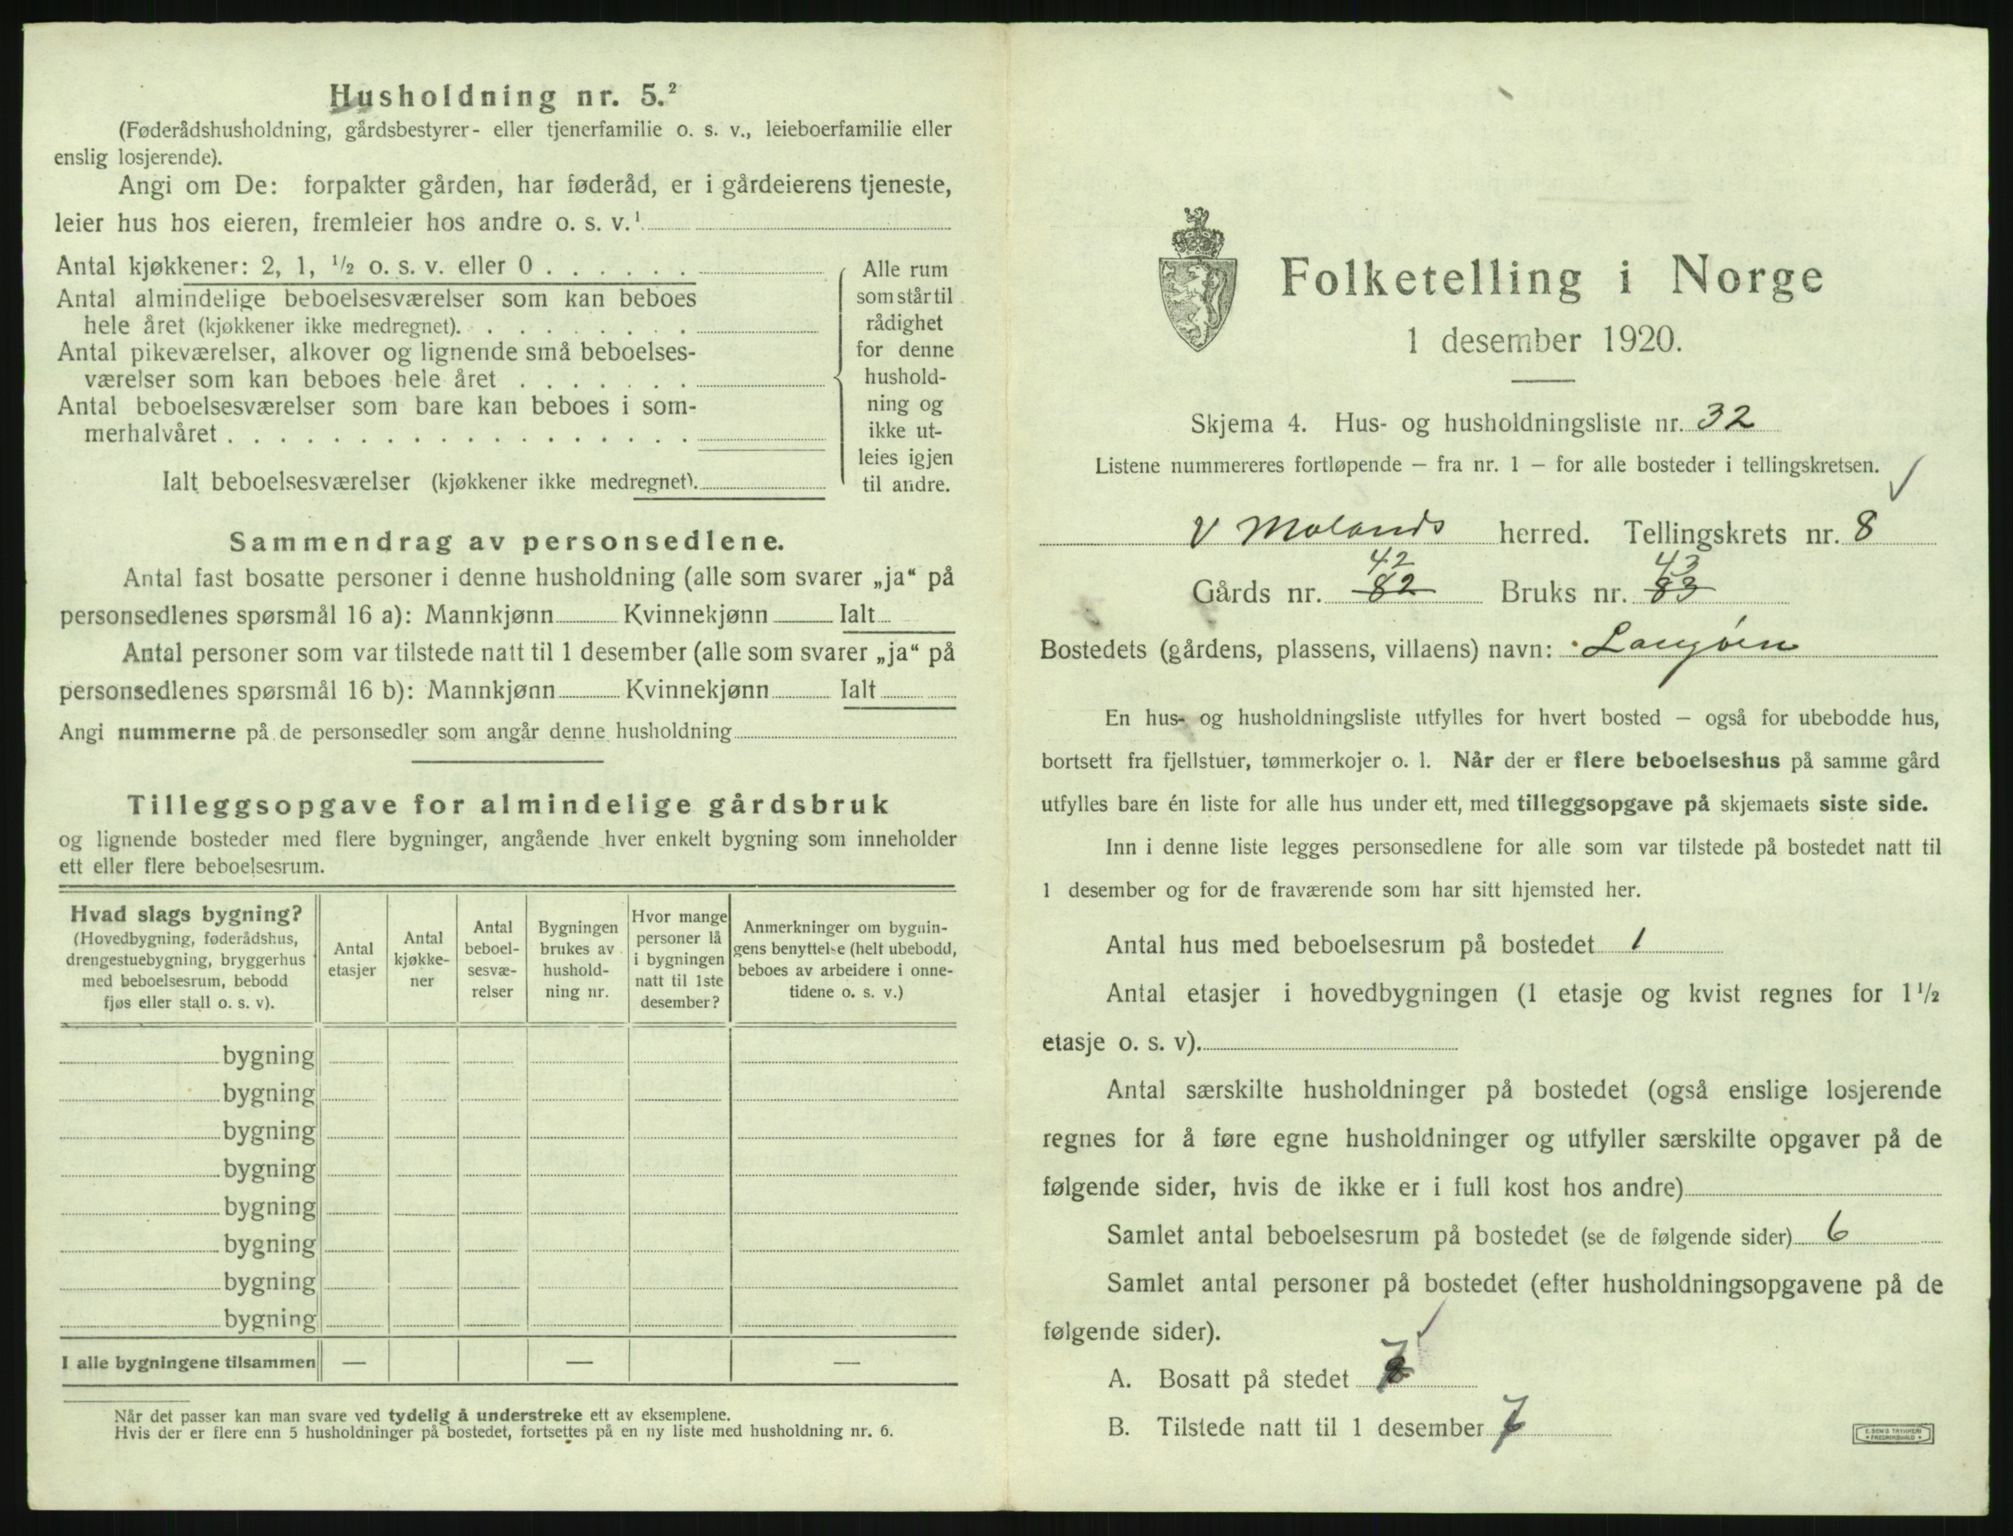 Husholdning nr. 5.²
(Føderådshusholdning, gårdsbestyrer- eller tjenerfamilie o. s. v., leieboerfamilie eller
enslig losjerende).
Angi om De: forpakter gården, har føderåd, er i gårdeierens tjeneste,
leier hus hos eieren, fremleier hos andre o. s. v.¹
Antal kjøkkener: 2, 1, ½ o. s. v. eller 0 . . . . . .
Antal almindelige beboelsesværelser som kan beboes
hele året (kjøkkener ikke medregnet). . . . . . . . .
Antal pikeværelser, alkover og lignende små beboelses-
værelser som kan beboes hele året . . . . . . .
Antal beboelsesværelser som bare kan beboes i som-
merhalvåret . . . . . . . . . . . . . . . . . .
Ialt beboelsesværelser (kjøkkener ikke medregnet).
Alle rum
som står til
rådighet
for denne
hushold-
ning og
ikke ut-
leies igjen
til andre.
Sammendrag av personsedlene.
Antal fast bosatte personer i denne husholdning (alle som svarer „ja“ på
personsedlenes spørsmål 16 a): Mannkjønn Kvinnekjønn Ialt
Antal personer som var tilstede natt til 1 desember (alle som svarer „ja“ på
personsedlenes spørsmål 16 b): Mannkjønn Kvinnekjønn Ialt
Angi nummerne på de personsedler som angår denne husholdning
Tilleggsopgave for almindelige gårdsbruk
og lignende bosteder med flere bygninger, angående hver enkelt bygning som inneholder
ett eller flere beboelsesrum.
Hvad slags bygning?
(Hovedbygning, føderådshus,
drengestuebygning, bryggerhus
med beboelsesrum, bebodd
fjøs eller stall o. s. v).
Antal
etasjer
Antal
kjøkke-
ner
Antal
beboel-
sesvæ-
relser
Bygningen
brukes av
hushold-
ning nr.
Hvor mange
personer lå
i bygningen
natt til 1ste
desember?
Anmerkninger om bygnin-
gens benyttelse (helt ubebodd,
beboes av arbeidere i onne-
tidene o. s. v.)
bygning
bygning
bygning
bygning
bygning
bygning
bygning
bygning
I alle bygningene tilsammen — — —
Når det passer kan man svare ved tydelig å understreke ett av eksemplene.
Hvis der er flere enn 5 husholdninger på bostedet, fortsettes på en ny liste med husholdning nr. 6.
Folketelling i Norge
1 desember 1920.
Skjema 4. Hus- og husholdningsliste nr. 32
Listene nummereres fortløpende – fra nr. 1 – for alle bosteder i tellingskretsen.
V Molands herred. Tellingskrets nr. 8
42 43
Gårds nr. 82 Bruks nr. 83
Bostedets (gårdens, plassens, villaens) navn: Langøen
En hus- og husholdningsliste utfylles for hvert bosted – også for ubebodde hus,
bortsett fra fjellstuer, tømmerkojer o. l. Når der er flere beboelseshus på samme gård
utfylles bare én liste for alle hus under ett, med tilleggsopgave på skjemaets siste side.
Inn i denne liste legges personsedlene for alle som var tilstede på bostedet natt til
1 desember og for de fraværende som har sitt hjemsted her.
Antal hus med beboelsesrum på bostedet 1
Antal etasjer i hovedbygningen (1 etasje og kvist regnes for 1½
etasje o. s. v).
Antal særskilte husholdninger på bostedet (også enslige losjerende
regnes for å føre egne husholdninger og utfyller særskilte opgaver på de
følgende sider, hvis de ikke er i full kost hos andre)
Samlet antal beboelsesrum på bostedet (se de følgende sider) 6
Samlet antal personer på bostedet (efter husholdningsopgavene på de
følgende sider).
A. Bosatt på stedet 7
B. Tilstede natt til 1 desember 7